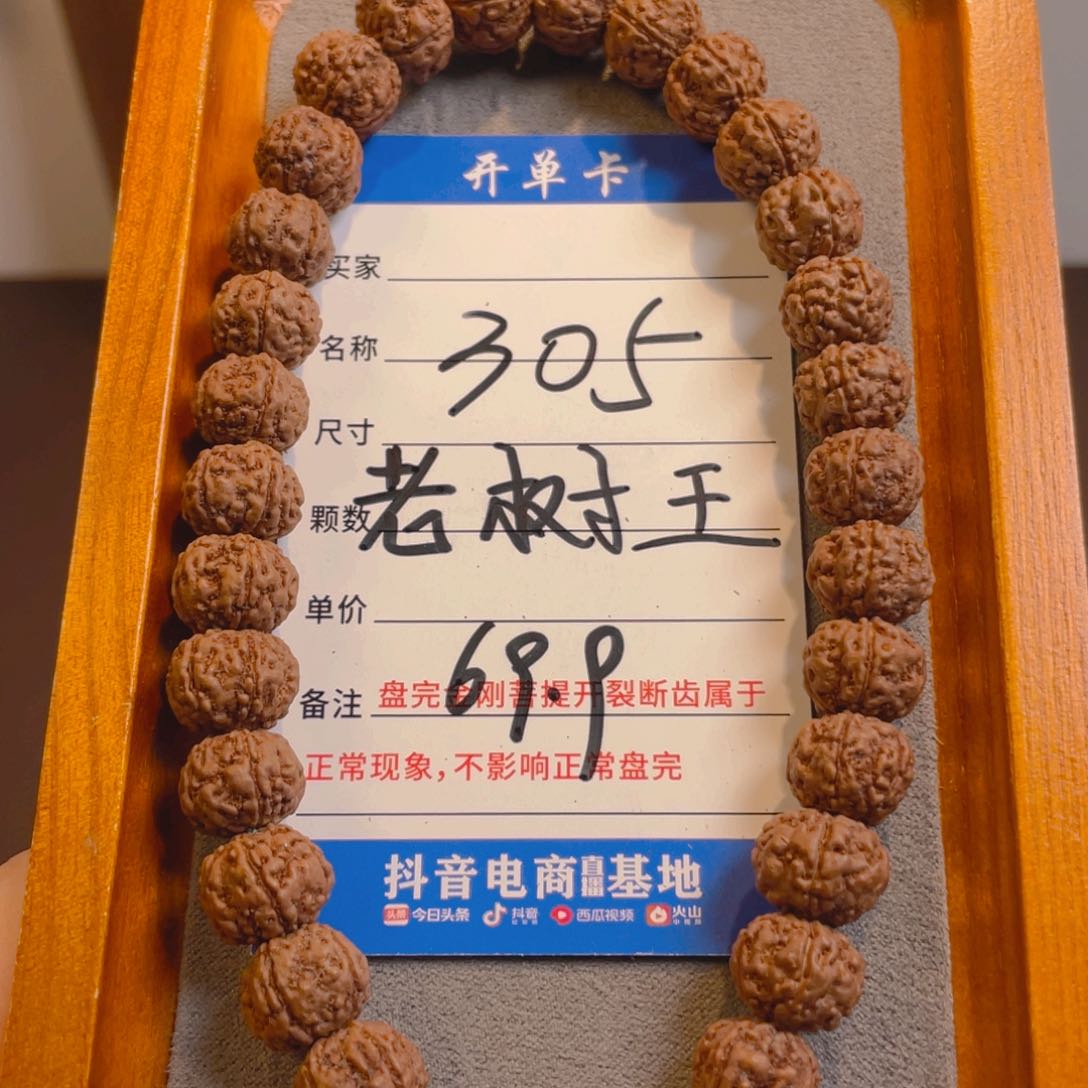 开单卡
买家
名称 305
尺寸
颗数 老树王
单价
69.9
备注 盘完金刚菩提开裂断齿属于
正常现象,不影响正常盘完
抖音电商直播基地
头条 今日头条 抖音 西瓜视频 火山